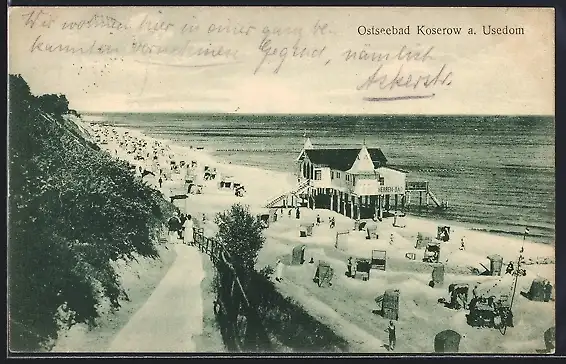 Ostseebad Koserow a. Usedom
Wir wohnen hier in einer ganz be-
kannten vornehmen Gegend, nämlich
Ackerstr.
HERREN-BAD